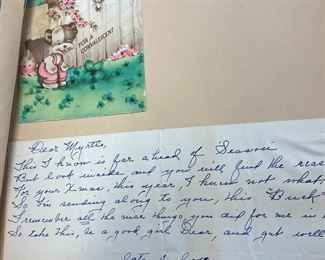 FOR A
CONVALESCENT
Dear Myrtle,
This I know is far ahead of Season
But look inside and you will find the reas
For your Xmas, this year, I knew not what
So I'm sending along to you, this "Buck"
I remember all the nice things, you did for me in
So take this, be a good girl Dear, and get well